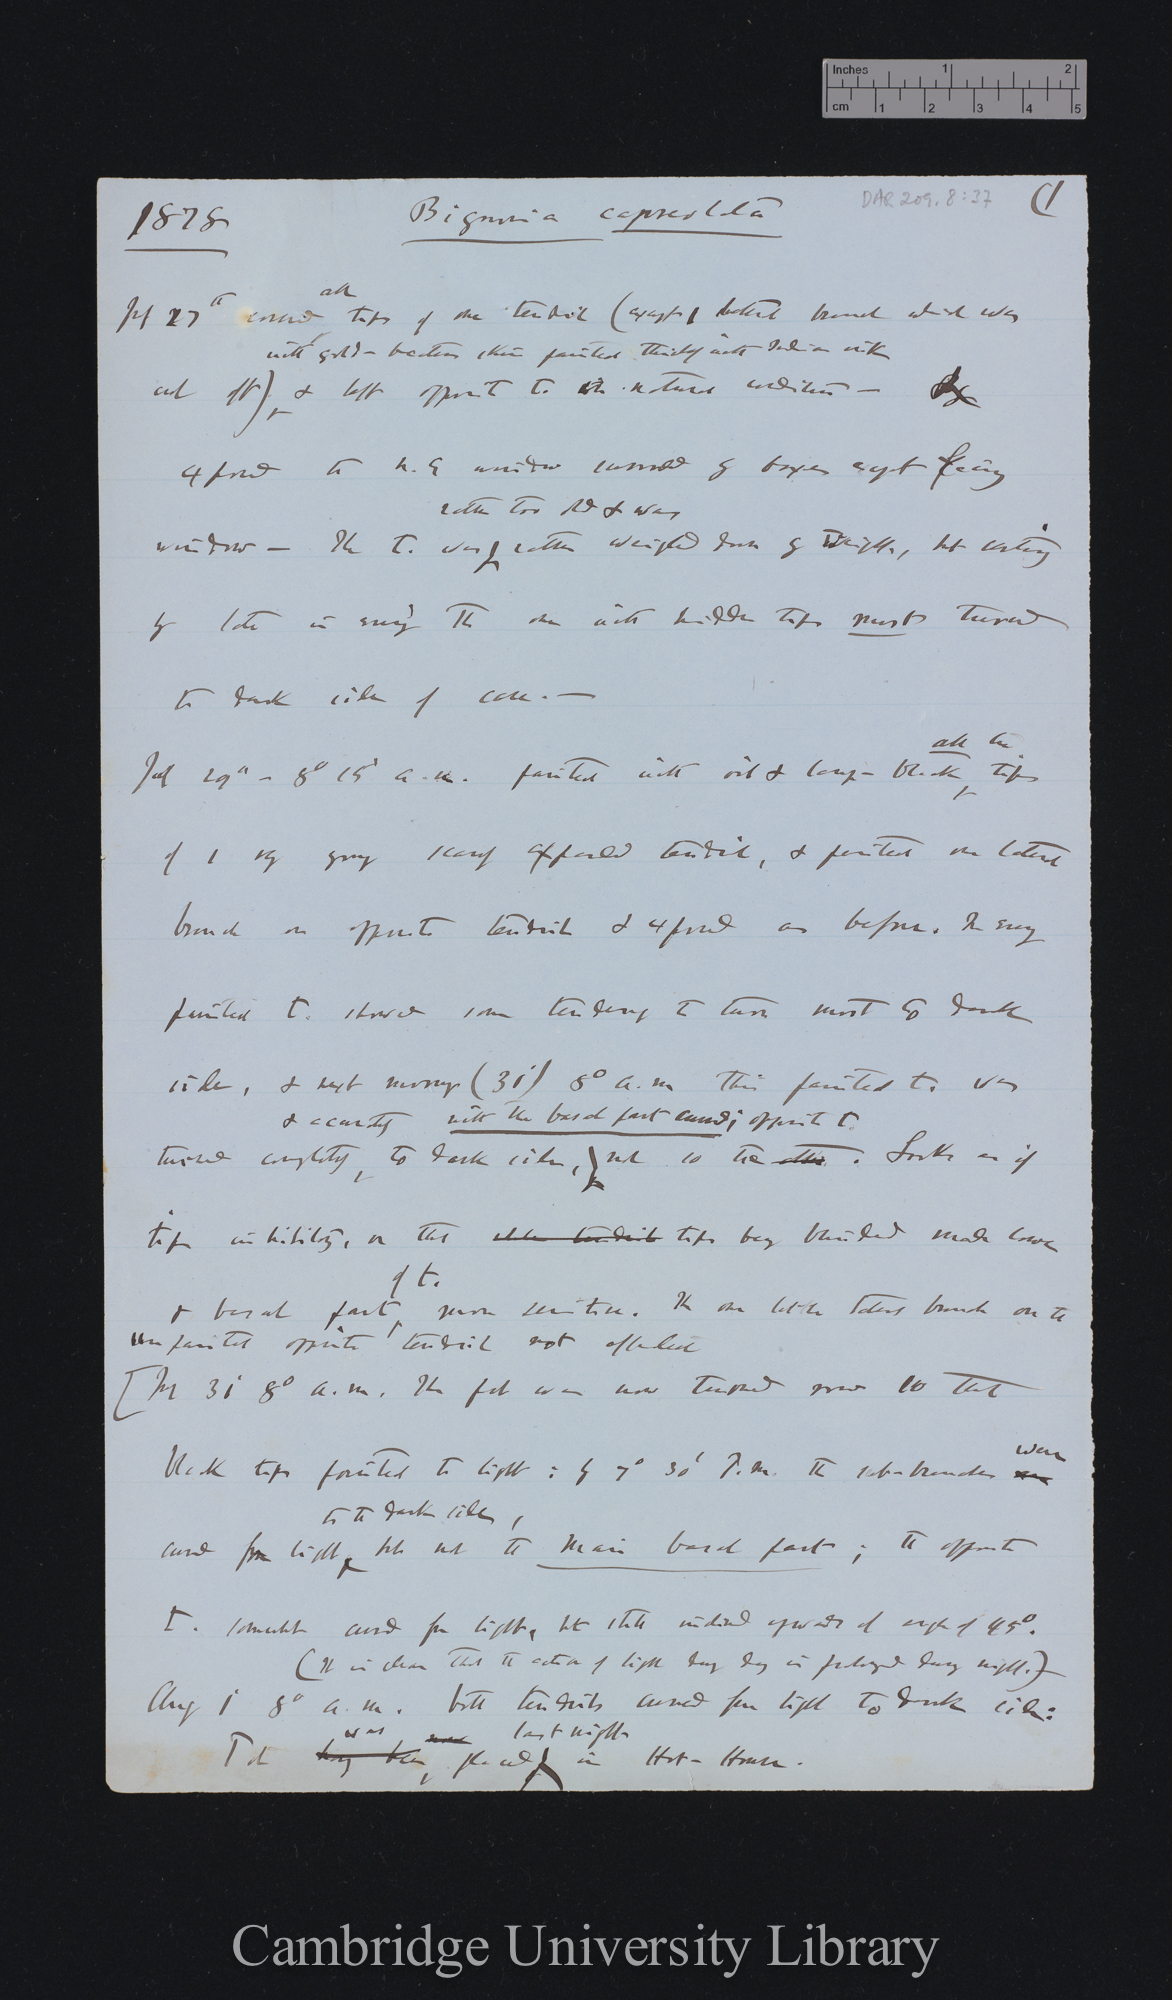 Inches 1 2
cm 1 2 3 4 5
DAR 209.8:37
(1
1878 Bignonia capreolata
all
July 27th covered tips of one tendril (except 1 lateral branch which was
with gold-beaters skin painted thickly with Indian ink
cut off), & left opposite t. in natural condition —
& placed to N.E window surrounded by boxes except facing
rather too old & was
window — The t. was rather weighted down by weights, but certainly
by late in evening the one with hidden tips most turned
to dark side of case. —
all the
July 29th – 8° 15' a.m. painted with oil & lamp-black tips
of 1 very young scarcely expanded tendril, & painted one lateral
branch on opposite tendril & placed as before. In evening
painted t. showed some tendency to turn most to dark
side, & next morning (31) 8° a.m this painted t. was
& accurately with the basal part curved; opposite t.
turned completely to dark side, not so the other. Looks as if
tips inhibitory, or that when tendril tips being blinded made lower
of t.
& basal part more sensitive. The one little lateral branch on the
unpainted opposite tendril not affected
[July 31 8° a.m. The pot was now turned now so that
were
black tips pointed to light: by 7° 30' P.m. the sub-branches
to the dark side,
curved from light but not the main basal part; the opposite
t. somewhat curved from light, but still inclined upwards at angle of 45°.
(It is clear that the action of light during day is prolonged during night.)
Aug 1 8° a.m. both tendrils curved from light to dark side:
was last night
Pot having been placed in Hot-House.
Cambridge University Library